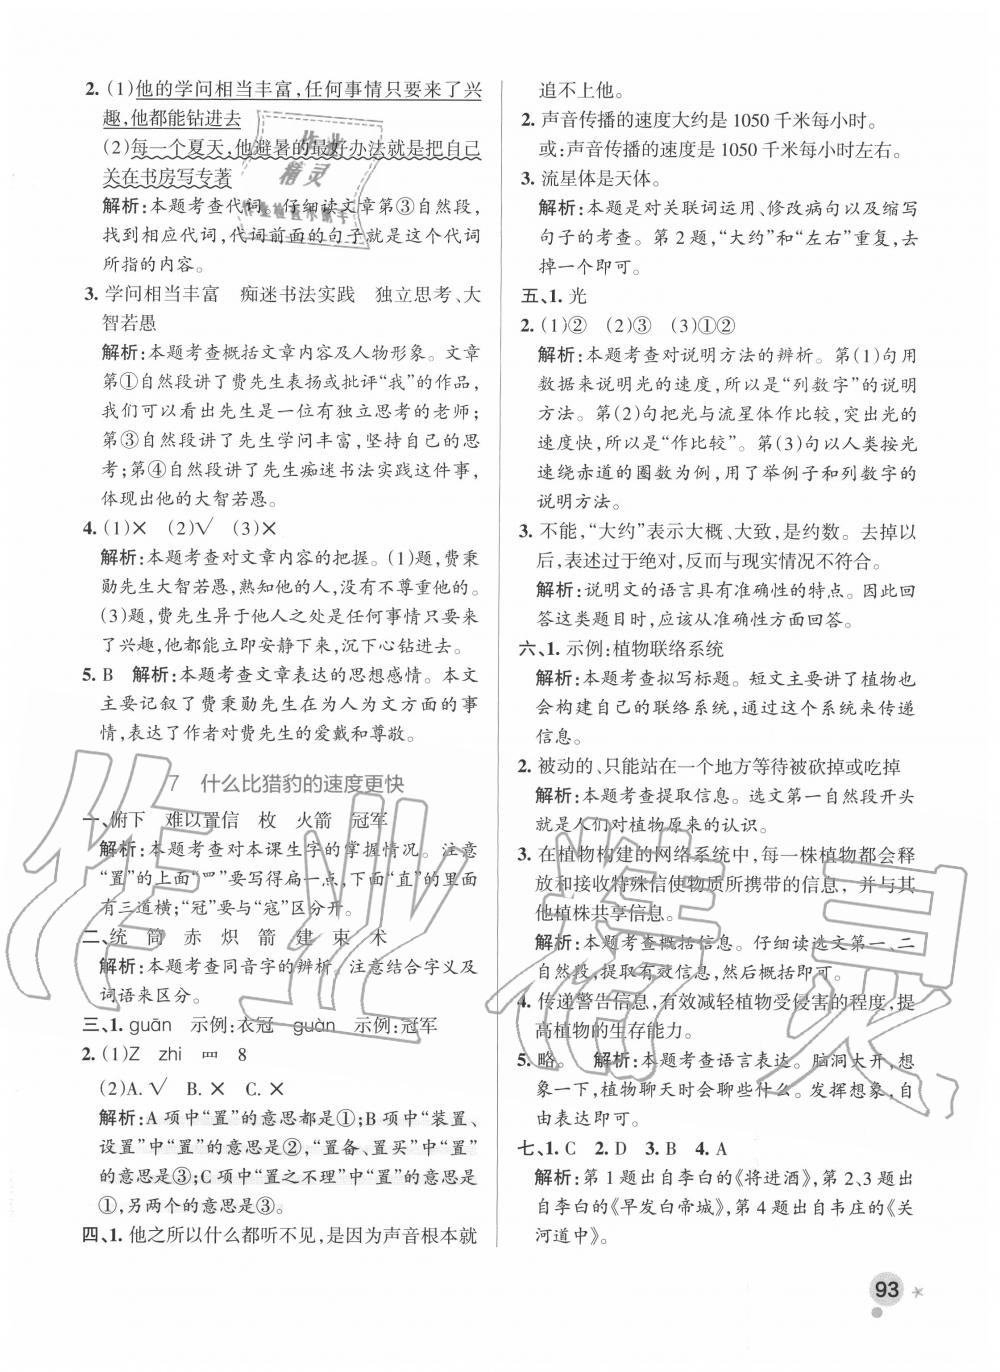 2. (1)他的学问相当丰富,任何事情只要来了兴
趣,他都能钻进去
(2)每一个夏天,他避暑的最好办法就是把自己
关在书房写专著
解析:本题考查代词。仔细读文章第③自然段,
找到相应代词,代词前面的句子就是这个代词
所指的内容。
3. 学问相当丰富 痴迷书法实践 独立思考、大
智若愚
解析:本题考查概括文章内容及人物形象。文章
第①自然段讲了费先生表扬或批评“我”的作品,
我们可以看出先生是一位有独立思考的老师;
第③自然段讲了先生学问丰富,坚持自己的思
考;第④自然段讲了先生痴迷书法实践这件事,
体现出他的大智若愚。
4. (1)× (2)√ (3)×
解析:本题考查对文章内容的把握。(1)题,费秉
勋先生大智若愚,熟知他的人,没有不尊重他的。
(3)题,费先生异于他人之处是任何事情只要来
了兴趣,他都能立即安静下来,沉下心钻进去。
5. B 解析:本题考查文章表达的思想感情。本文
主要记叙了费秉勋先生在为人为文方面的事
情,表达了作者对费先生的爱戴和尊敬。
7 什么比猎豹的速度更快
一、俯下 难以置信 枚 火箭 冠军
解析:本题考查对本课生字的掌握情况。注意
“置”的上面“罒”要写得扁一点,下面“直”的里面
有三道横;“冠”要与“寇”区分开。
二、统 筒 赤 炽 箭 建 束 术
解析:本题考查同音字的辨析。注意结合字义及
词语来区分。
三、1. guān 示例:衣冠 guàn 示例:冠军
2. (1)Z zhi 罒 8
(2)A. √ B. × C. ×
解析:A 项中“置”的意思都是①;B项中“装置、
设置”中“置”的意思是②,“置备、置买”中“置”
的意思是③;C 项中“置之不理”中“置”的意思是
①,另两个的意思是③。
四、1. 他之所以什么都听不见,是因为声音根本就
追不上他。
2. 声音传播的速度大约是 1050 千米每小时。
或:声音传播的速度是 1050 千米每小时左右。
3. 流星体是天体。
解析:本题是对关联词运用、修改病句以及缩写
句子的考查。第 2 题,“大约”和“左右”重复,去
掉一个即可。
五、1. 光
2. (1)② (2)③ (3)①②
解析:本题考查对说明方法的辨析。第(1)句用
数据来说明光的速度,所以是“列数字”的说明
方法。第(2)句把光与流星体作比较,突出光的
速度快,所以是“作比较”。第(3)句以人类按光
速绕赤道的圈数为例,用了举例子和列数字的
说明方法。
3. 不能,“大约”表示大概、大致,是约数。去掉以
后,表述过于绝对,反而与现实情况不符合。
解析:说明文的语言具有准确性的特点。因此回
答这类题目时,应该从准确性方面回答。
六、1. 示例:植物联络系统
解析:本题考查拟写标题。短文主要讲了植物也
会构建自己的联络系统,通过这个系统来传递
信息。
2. 被动的、只能站在一个地方等待被砍掉或吃掉
解析:本题考查提取信息。选文第一自然段开头
就是人们对植物原来的认识。
3. 在植物构建的网络系统中,每一株植物都会释
放和接收特殊信使物质所携带的信息，并与其
他植株共享信息。
解析:本题考查概括信息。仔细读选文第一、二
自然段,提取有效信息,然后概括即可。
4. 传递警告信息,有效减轻植物受侵害的程度,提
高植物的生存能力。
5. 略。 解析:本题考查语言表达。脑洞大开,想
象一下,植物聊天时会聊些什么。发挥想象,自
由表达即可。
七、1. C 2. D 3. B 4. A
解析:第 1 题出自李白的《将进酒》,第 2、3 题出
自李白的《早发白帝城》,第 4 题出自韦庄的《关
河道中》。
93
作业
精灵
作业精灵